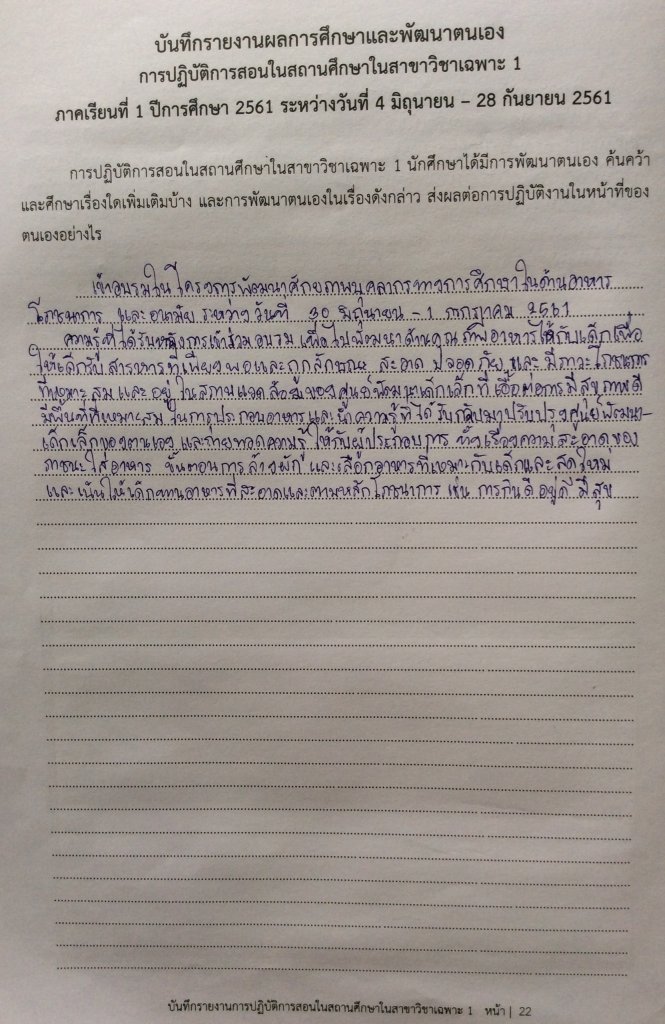 บันทึกรายงานผลการศึกษาและพัฒนาตนเอง
การปฏิบัติการสอนในสถานศึกษาในสาขาวิชาเฉพาะ 1
ภาคเรียนที่ 1 ปีการศึกษา 2561 ระหว่างวันที่ 4 มิถุนายน – 28 กันยายน 2561
การปฏิบัติการสอนในสถานศึกษาในสาขาวิชาเฉพาะ 1 นักศึกษาได้มีการพัฒนาตนเอง ค้นคว้า
และศึกษาเรื่องใดเพิ่มเติมบ้าง และการพัฒนาตนเองในเรื่องดังกล่าว ส่งผลต่อการปฏิบัติงานในหน้าที่ของ
ตนเองอย่างไร
เข้าอบรมในโครงการพัฒนาศักยภาพบุคลากรทางการศึกษาในด้านอาหาร
โภชนาการ และอนามัย ระหว่างวันที่ 30 มิถุนายน - 1 กรกฎาคม 2561
ความรู้ที่ได้รับหลังการเข้าร่วมอบรม เพื่อไปพัฒนาด้านคุณภาพอาหารให้กับเด็กเพื่อ
ให้เด็กรับสารอาหารที่เพียงพอและถูกลักษณะ สะอาด ปลอดภัย และ มีภาวะโภชนาการ
ที่เหมาะสม และอยู่ในสภาพแวดล้อมของศูนย์พัฒนาเด็กเล็กที่เอื้อต่อการมีสุขภาพดี
มีพื้นที่ที่เหมาะสมในการประกอบอาหาร และนำความรู้ที่ได้รับกลับมาปรับปรุงศูนย์พัฒนา-
เด็กเล็กของตนเอง และถ่ายทอดความรู้ให้กับผู้ประกอบการ ทั้งเรื่องความสะอาดของ
ภาชนะใส่อาหาร ขั้นตอนการล้างผัก และเลือกอาหารที่เหมาะกับเด็กและสดใหม่
และเน้นให้เด็กทานอาหารที่สะอาดและตามหลักโภชนาการ เช่น การกินดี อยู่ดี มีสุข
บันทึกรายงานการปฏิบัติการสอนในสถานศึกษาในสาขาวิชาเฉพาะ 1 หน้า | 22